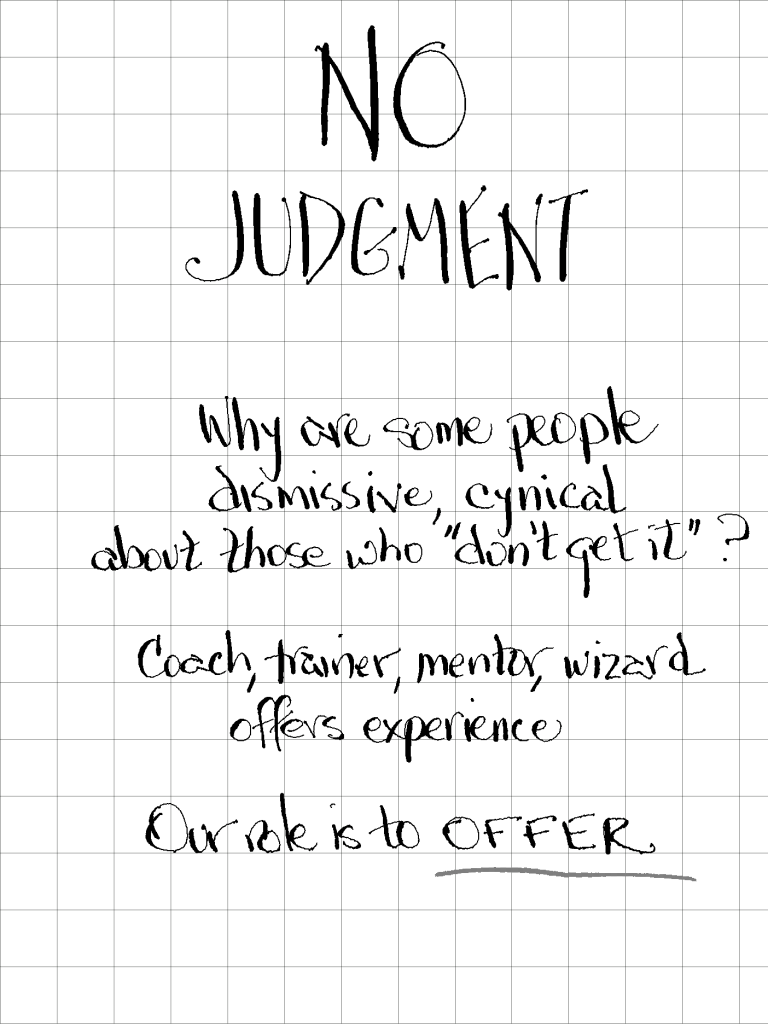 NO
JUDGMENT
Why are some people
dismissive, cynical
about those who "don't get it"?
Coach, trainer, mentor, wizard
offers experience
Our role is to OFFER